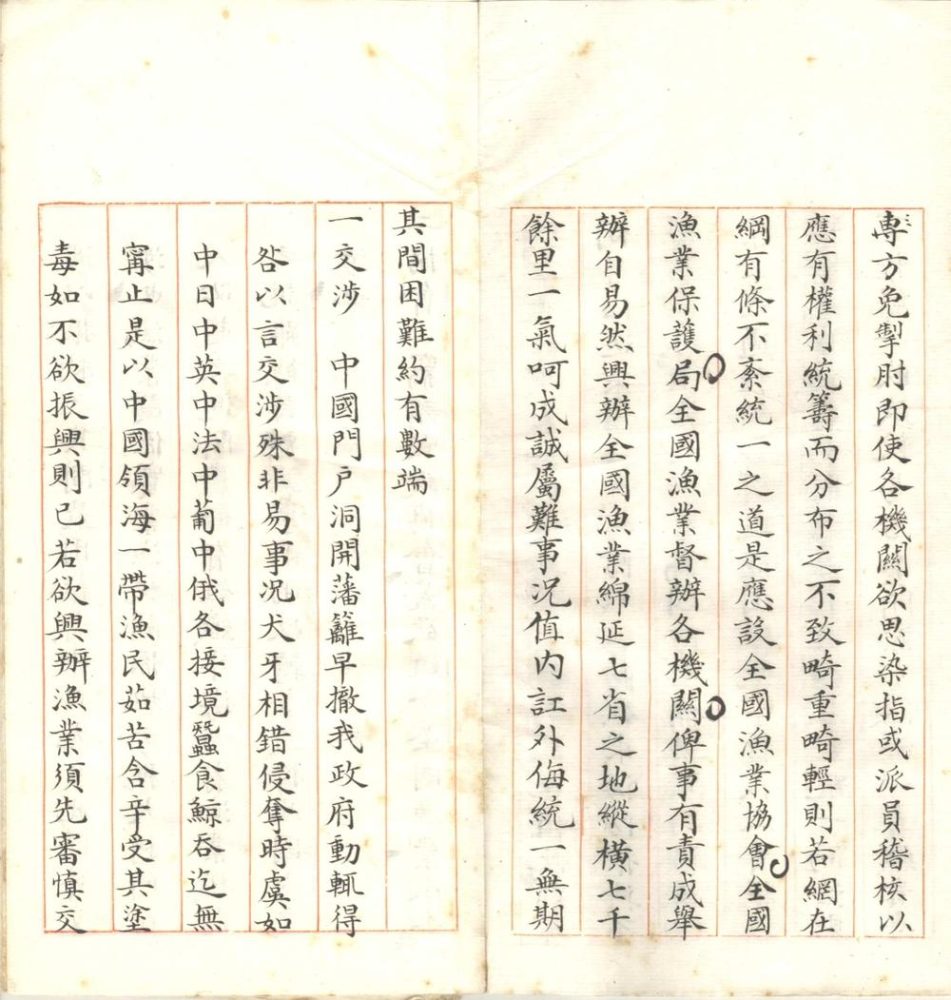 專方免掣肘即使各機關欲思染指或派員稽核以
應有權利統籌而分布之不致畸重畸輕則若網在
綱有條不紊統一之道是應設全國漁業協會全國
漁業保護局全國漁業督辦各機關俾事有責成舉
辦自易然興辦全國漁業綿延七省之地縱橫七千
餘里一氣呵成誠屬難事况值内訌外侮統一無期
其間困難約有數端
一交涉　中國門户洞開藩籬早撤我政府動輒得
咎以言交涉殊非易事况犬牙相錯侵奪時虞如
中日中英中法中葡中俄各接境蠶食鯨吞迄無
甯止是以中國領海一帶漁民茹苦含辛受其塗
毒如不欲振興則已若欲興辦漁業須先審慎交